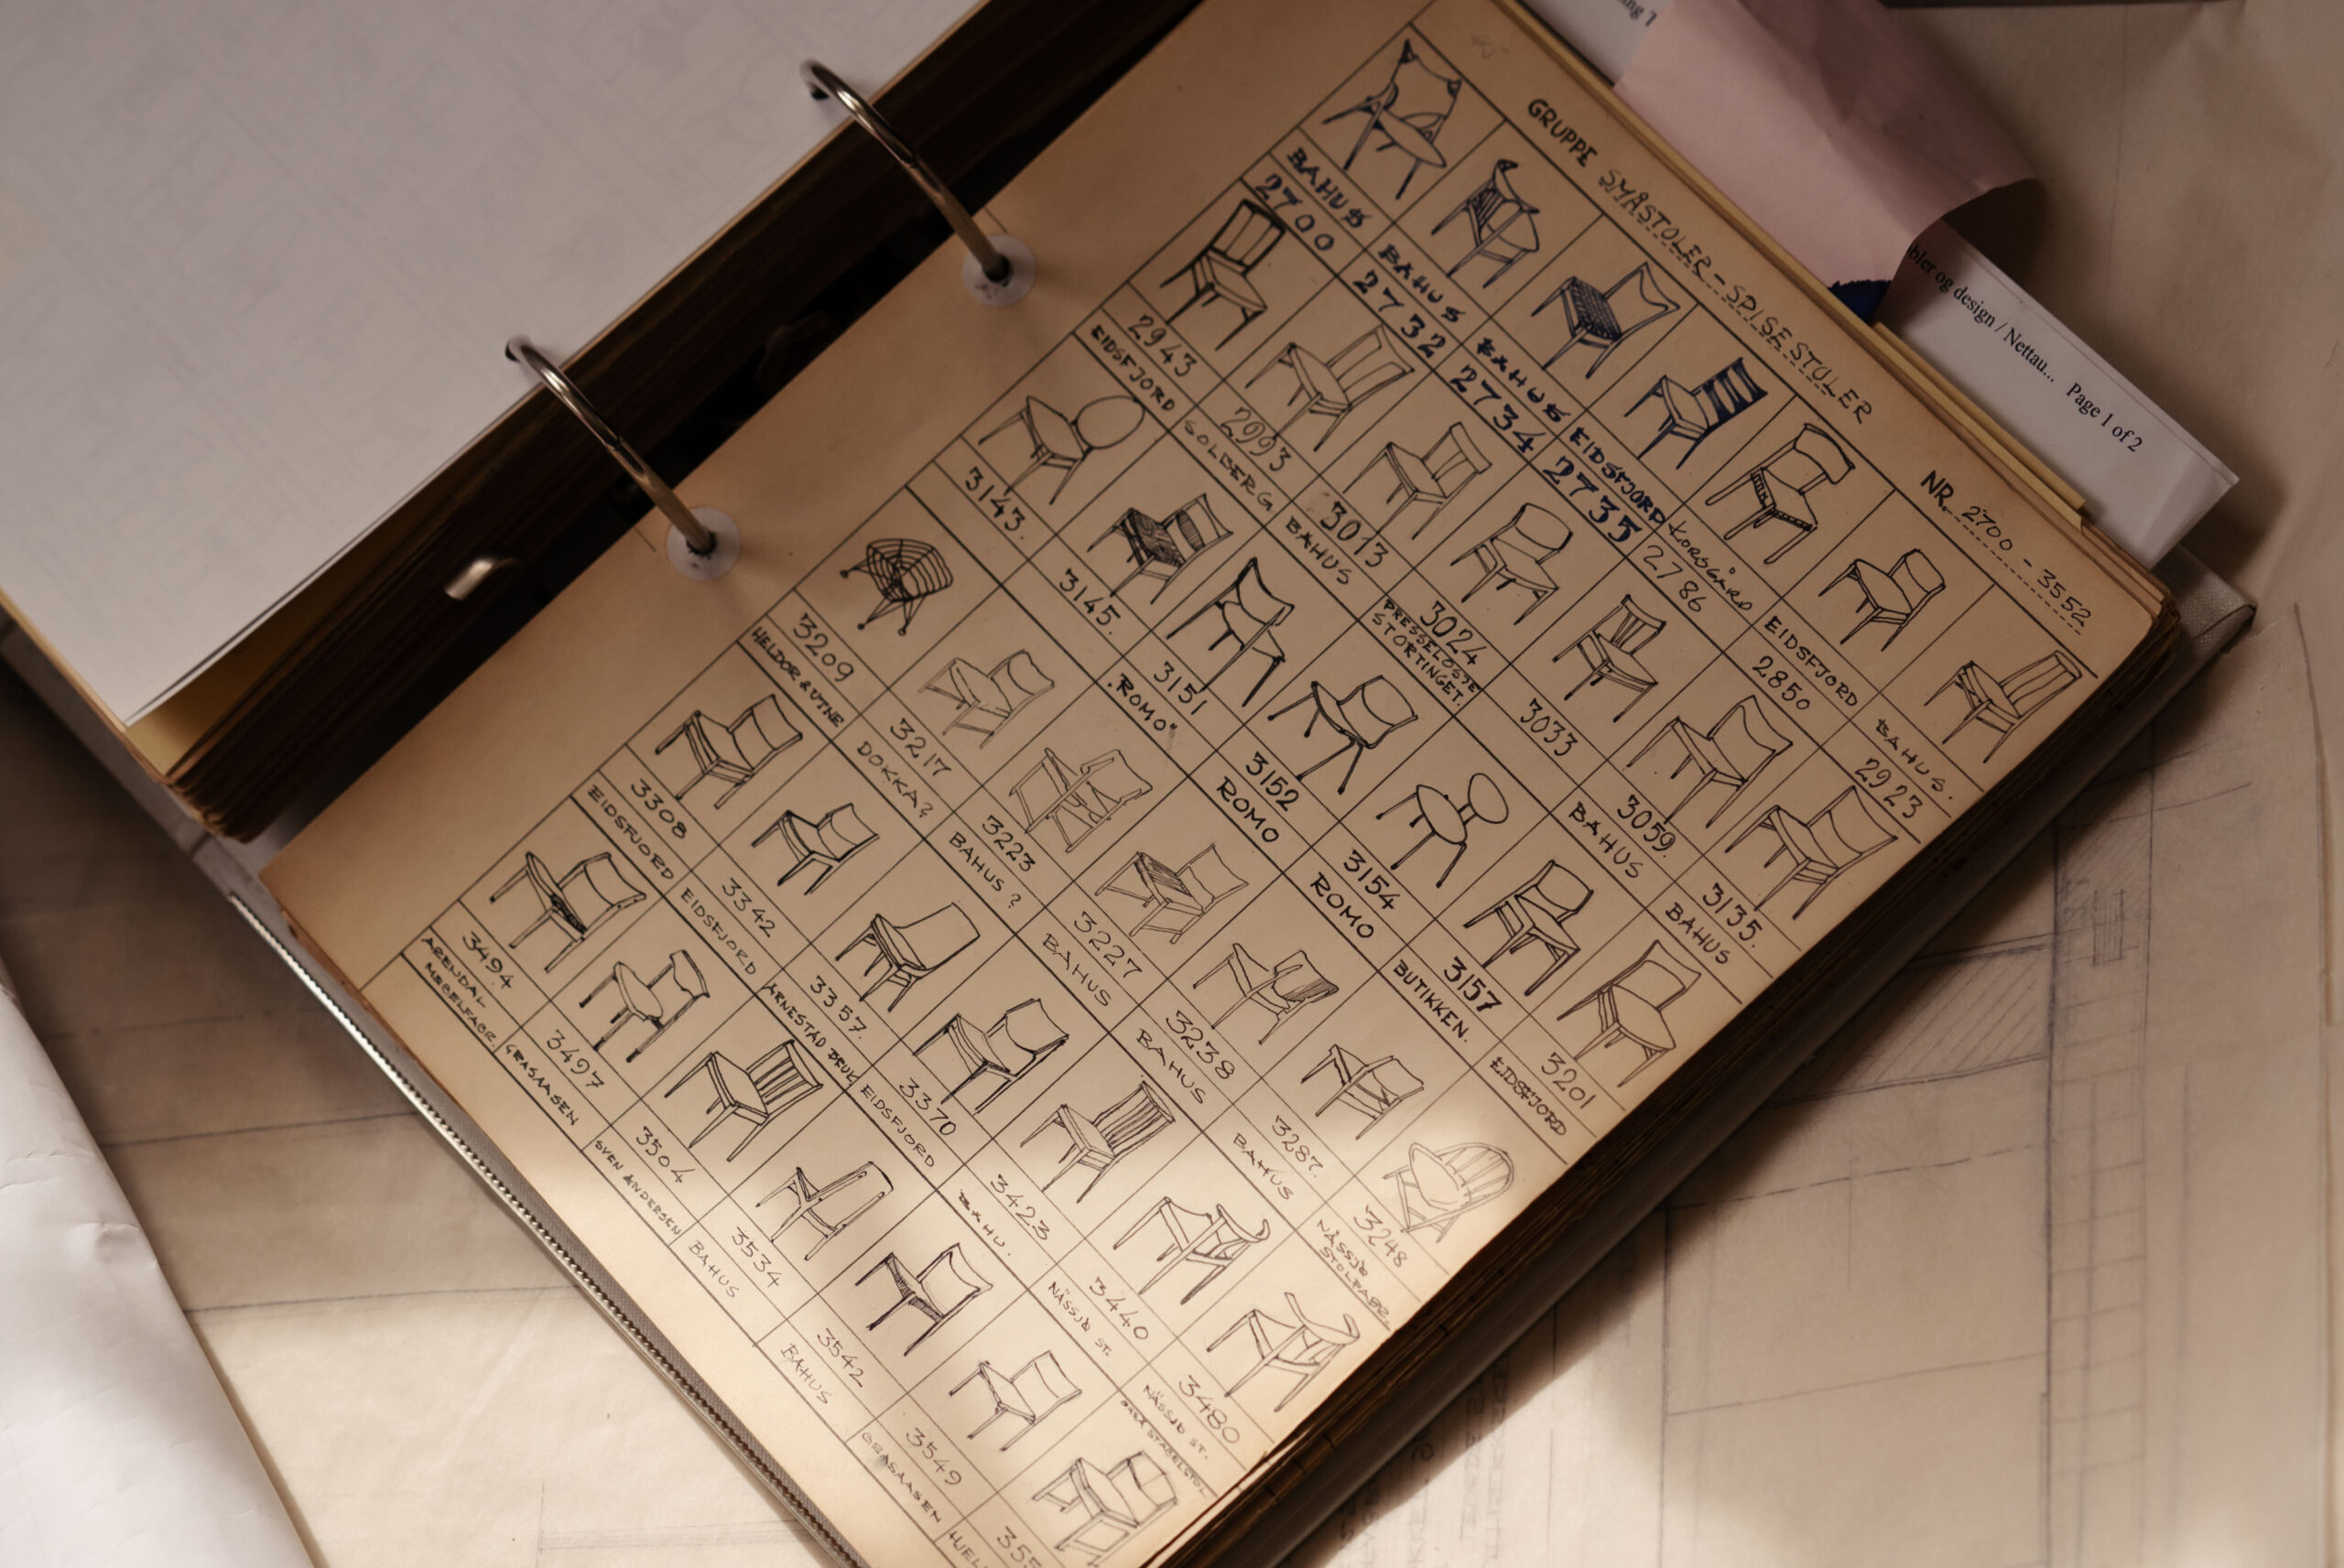 GRUPPE SMÅSTOLER - SPISESTOLER
NR. 2700 - 3552
BAHUS
BAHUS
BAHUS
EIDSFJORD
KORSGÅRD
EIDSFJORD
BAHUS.
2700
2732
2734
2735
2786
2850
2923
2943
2993
3013
3024
3033
3059.
3135.
EIDSFJORD
SOLBERG
BAHUS
PRESSELOSJE
STORTINGET.
BAHUS
BAHUS
3143.
3145.
3151
3152
3154
3157
3201
"ROMO"
ROMO
ROMO
BUTIKKEN.
EIDSFJORD
3209
3217
3223
3227
3238
3287.
3248
HELDOR & UTNE
DOKKA?
BAHUS?
BAHUS
BAHUS
BAHUS
NÄSSJÖ
STOLFABR.
3308
3342
3357.
3370
3423
3440
3480
EIDSFJORD
EIDSFJORD
ARNESTAD BRUK
EIDSFJORD
BAHU.
NÄSSJÖ ST.
NÄSSJÖ ST.
3494
3497
3504
3534
3542
3549
355
ARENDAL
MØBELFABR.
GRASAASEN
SVEN ANDERSEN
BAHUS
BAHUS
GRASAASEN
ing T
bler og design / Nettau... Page 1 of 2